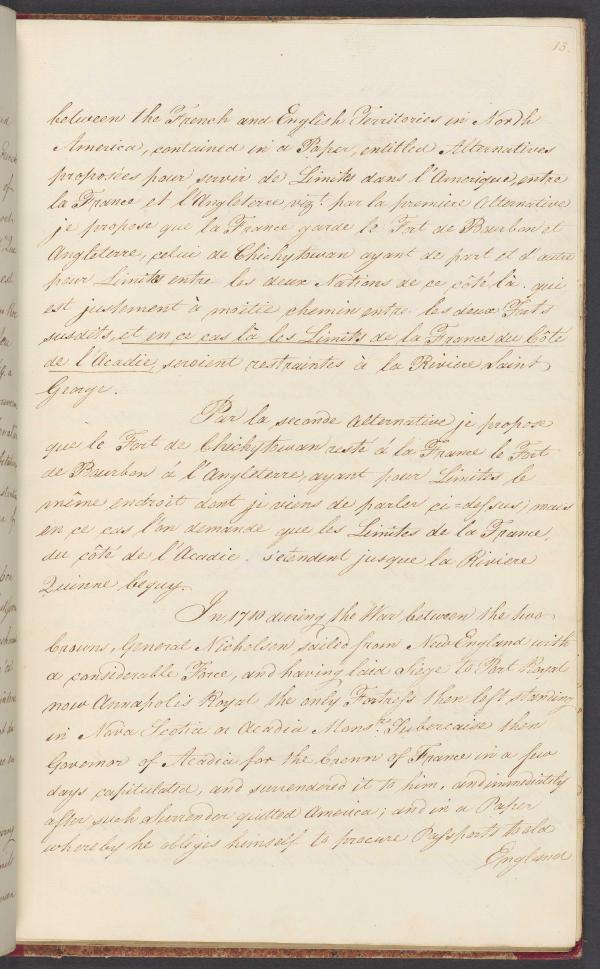 13.
between the French and English Territories in North
America, contained in a Paper, entitled Alternatives
proposées pour servir de Limites dans l'Amerique, entre
la France et l'Angleterre, vizt. par la premiere Alternative
je propose que la France garde le Fort de Bourbon et
Angleterre, celui de Chichytowan ayant de part et d'autre
pour Limites entre les deux Nations de ce côté là. qui
est justement à moitie chemin entre les deux Forts
susdits, et en ce cas là les Limits de la France du Côté
de l'Acadie, seroient restraintes à la Riviere Saint
George.
Par la seconde Alternative je propose
que le Fort de Chichytowan reste á la France le Fort
de Bourbon á l'Angleterre, ayant pour Limites le
même endroit dont je viens de parler ci=dessus; mais
en ce cas l'on demande que les Limites de la France,
du côté de l'Acadie. s'etendent jusque la Riviere
Quinne beguy.
In 1710 during the War between the two
Crowns, General Nicholson sailed from New England with
a considerable Force, and having laid Siege to Port Royal
now Annapolis Royal the only Fortress then left standing
in Nova Scotia or Acadia Monsr. Subercaise then
Governor of Acadia for the Crown of France in a few
days capitulated, and surrendered it to him, and immediately
after such Surrender quitted America; and in a Paper
whereby he obliges himself to procure Passports to old
England